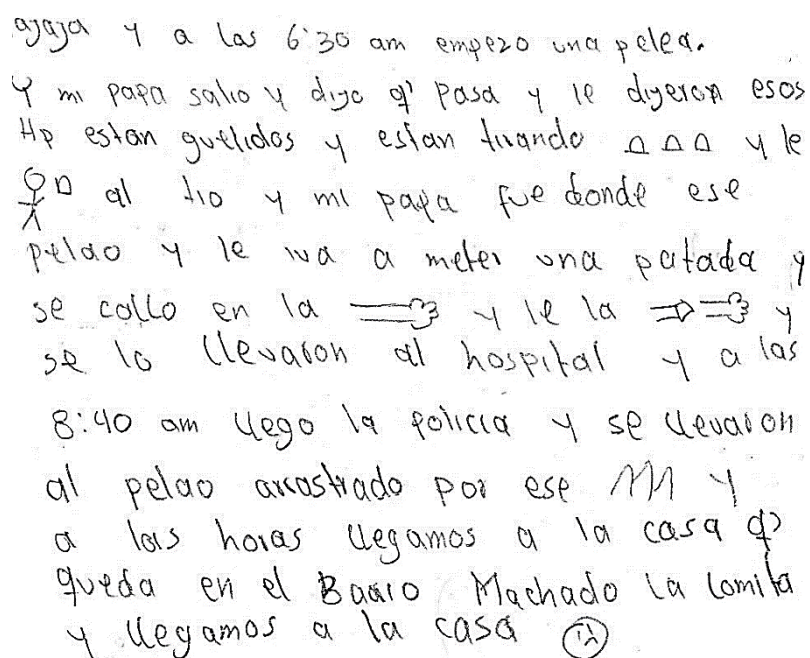 ajaja y a las 6:30 am empezo una pelea.
Y mi papa salio y dijo q' pasa y le dijeron esos
Hp estan guelidos y estan tirando y le
al tio y mi papa fue donde ese
pelao y le iva a meter una patada y
se collo en la y le la y
se lo llevaron al hospital y a las
8:40 am llego la policia y se llevaron
al pelao arrastrado por ese y
a las horas llegamos a la casa q'
queda en el Barrio Machado la lomita
y llegamos a la casa